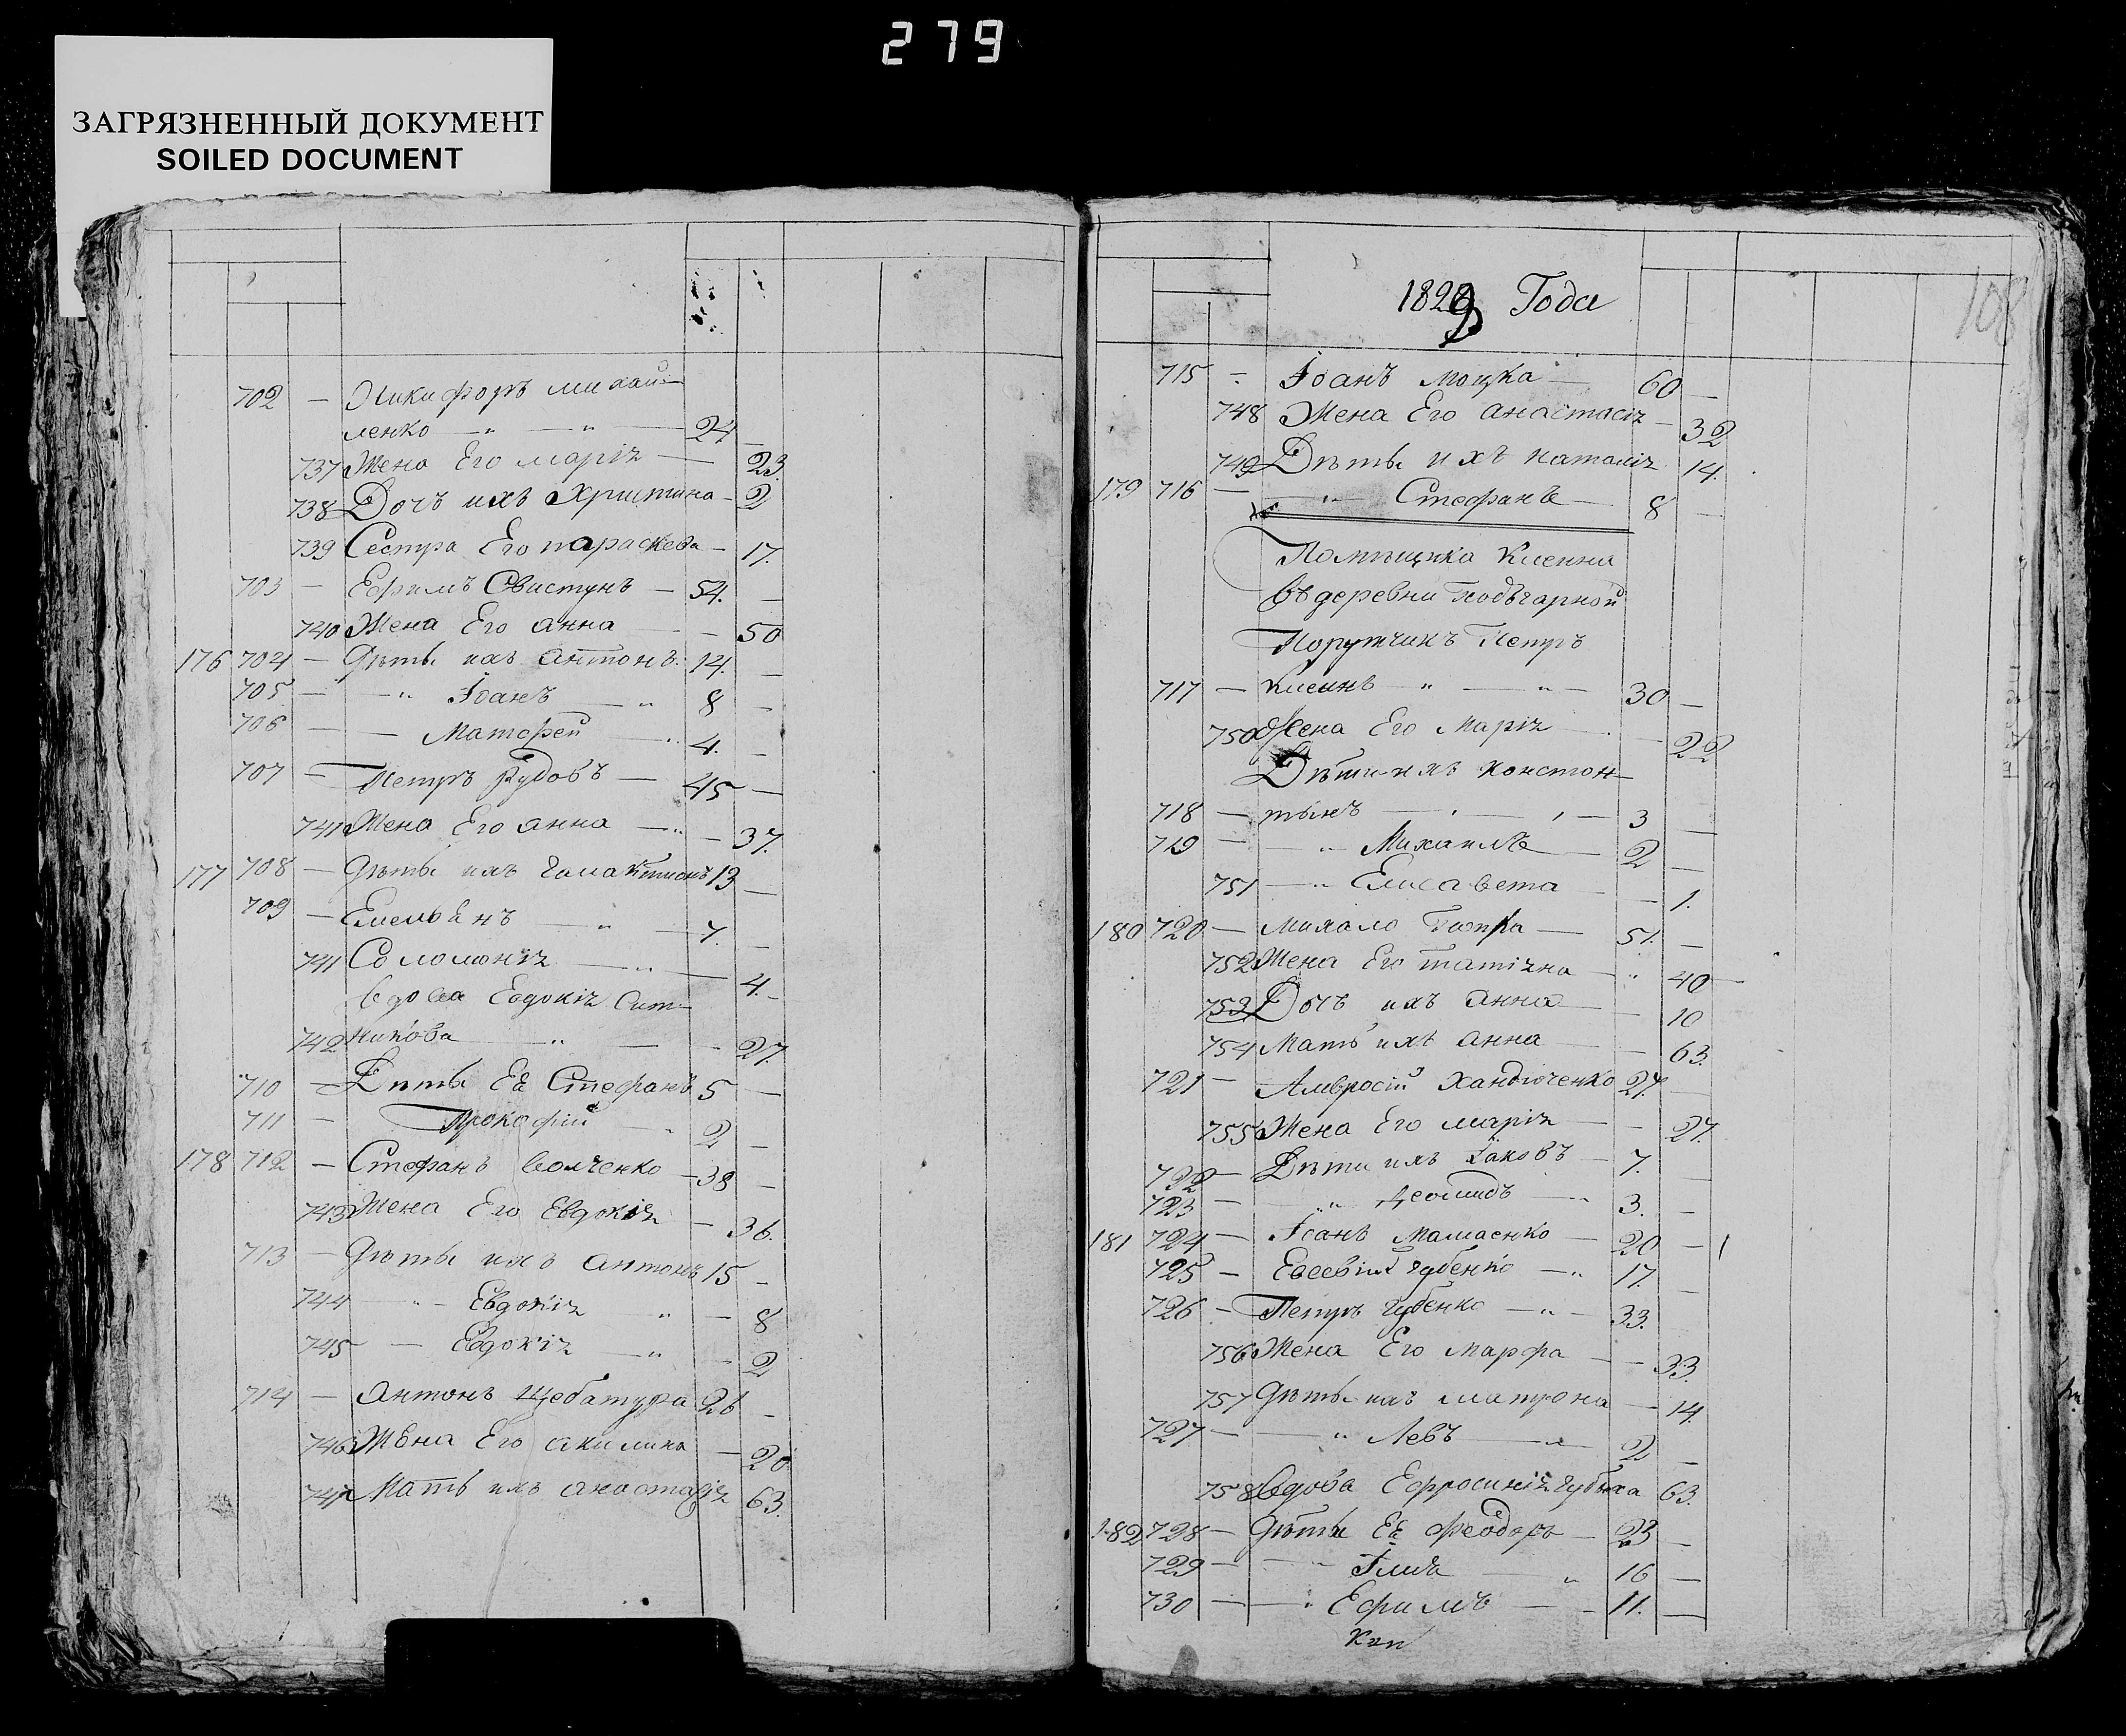 279
ЗАГРЯЗНЕННЫЙ ДОКУМЕНТ
SOILED DOCUMENT
702 — Никифоръ михай-
ленко — " — " — 24 —
737 Жена Его марія — 23.
738 Дочъ ихъ Христина — 2
739 Сестра Его параскева — 17.
703 — Ефимъ Свистунъ — 54. —
740 Жена Его анна — — 50
176 704 — Дѣты ихъ антонъ. 14. —
705 — — " Іоанъ — " 8 —
706 — — Матфей " 4. —
707 — Петръ Рудовъ — 45 —
741 Жена Его анна — " — 37.
177 708 — Дѣты ихъ Галактионъ 13 —
709 — Емельѧнъ — " — 7. —
741 Соломонія — " — 4. —
вдова Евдокія Сит-
742 никова — " — — 27.
710 — Дѣты Еѧ Стефанъ 5 —
711 — Прокофій — " 2 —
178 712 — Стефанъ волченко — 38 —
743 Жена Его Евдокія — 36.
713 — Дѣты ихъ антонъ 15 —
744 — " — Евдокія " — 8
745 — Евдокія — " — 2
714 — антонъ Щебатура 26 —
746 Жена Его акилина — 20.
747 Мать ихъ анастасія 63.
1829 Года
108
715 — Іоанъ моцка — 60 —
748 Жена Его анастасія — 32
749 Дѣты ихъ наталія 14.
179 716 — — " — Стефанъ — 8 —
Помѣщика
въ деревни Подъгарной
Порутчикъ Петръ
717 — — " — " — 30 —
750 Жена Его Марія — — 22
Дѣти ихъ констон-
718 — тынъ — " — " — 3 —
719 — — " Михаилъ — 2 —
751 — " Елисавета — — 1.
180 720 — Михало — 51. —
752 Жена Его татіяна — " 40 —
753 Дочъ ихъ анна — 10
754 Мать ихъ анна — — 63.
721 — Амвросій Хандюченко 27. —
755 Жена Его марія — — 27.
722 — Дѣти ихъ Іаковъ — 7. —
723 — — " Леонидъ — " 3. —
181 724 — Іоанъ Мамаенко — 20 —
725 — Евсевій губенко — " 17. —
726 — Петръ губенко — " — 33. —
756 Жена Его марфа — — 33.
757 Дѣты ихъ матрона — 14.
727 — — " Левъ — " — 2 —
758 вдова Ефросинія губыха 63.
182 728 — Дѣты Еѧ феодоръ — 23 —
729 — — " Іліѧ — " 16 —
730 — — " Ефимъ — — 11. —